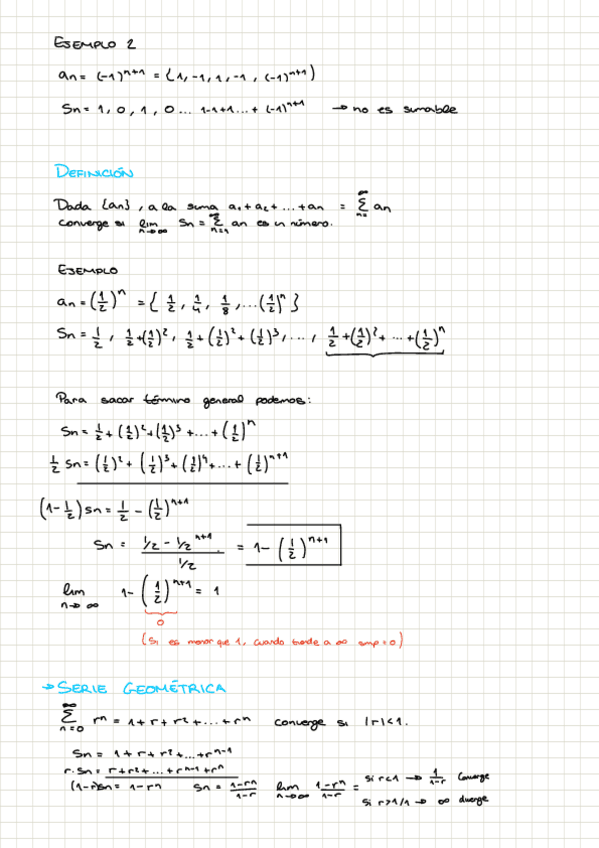 EJEMPLO 2
an = (-1)^{n+1} = {1, -1, 1, -1, (-1)^{n+1})
Sn = 1, 0, 1, 0 ... 1-1+1 ... + (-1)^{n+1} → no es sumable
DEFINICIÓN
Dada {an}, a la suma a₁ + a₂ + ... + an = ∑_{n=}^{∞} an
converge si lim_{n→∞} Sn = ∑_{n=1}^{∞} an es un número.
EJEMPLO
an = (1/2)^n = { 1/2, 1/4, 1/8, ... (1/2)^n }
Sn = 1/2, 1/2 + (1/2)^2, 1/2 + (1/2)^2 + (1/2)^3, ..., 1/2 + (1/2)^2 + ... + (1/2)^n
Para sacar término general podemos:
Sn = 1/2 + (1/2)^2 + (1/2)^3 + ... + (1/2)^n
1/2 Sn = (1/2)^2 + (1/2)^3 + (1/2)^4 + ... + (1/2)^{n+1}
(1 - 1/2) Sn = 1/2 - (1/2)^{n+1}
Sn = (1/2 - 1/2^{n+1}) / (1/2) = 1 - (1/2)^{n+1}
lim_{n→∞} 1 - (1/2)^{n+1} = 1
0
(Si es menor que 1, cuando tiende a ∞ smp = 0)
→ SERIE GEOMÉTRICA
∑_{n=0}^{∞} r^n = 1 + r + r² + ... + r^n converge si |r| < 1.
Sn = 1 + r + r² + ... + r^{n-1}
r·Sn = r + r² + ... + r^{n-1} + r^n
(1-r)Sn = 1 - r^n Sn = (1-r^n)/(1-r) lim_{n→∞} (1-r^n)/(1-r) = si r<1 → 1/(1-r) converge
si r>1/1 → ∞ diverge